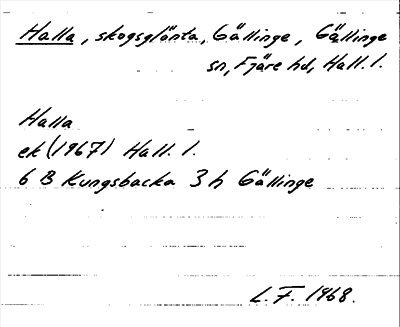 Halla, skogsglänta, Gällinge, Gällinge
sn, Fjäre hd, Hall. l.
Halla
ek (1967) Hall. l.
6 B Kungsbacka 3 h Gällinge
L. F. 1968.